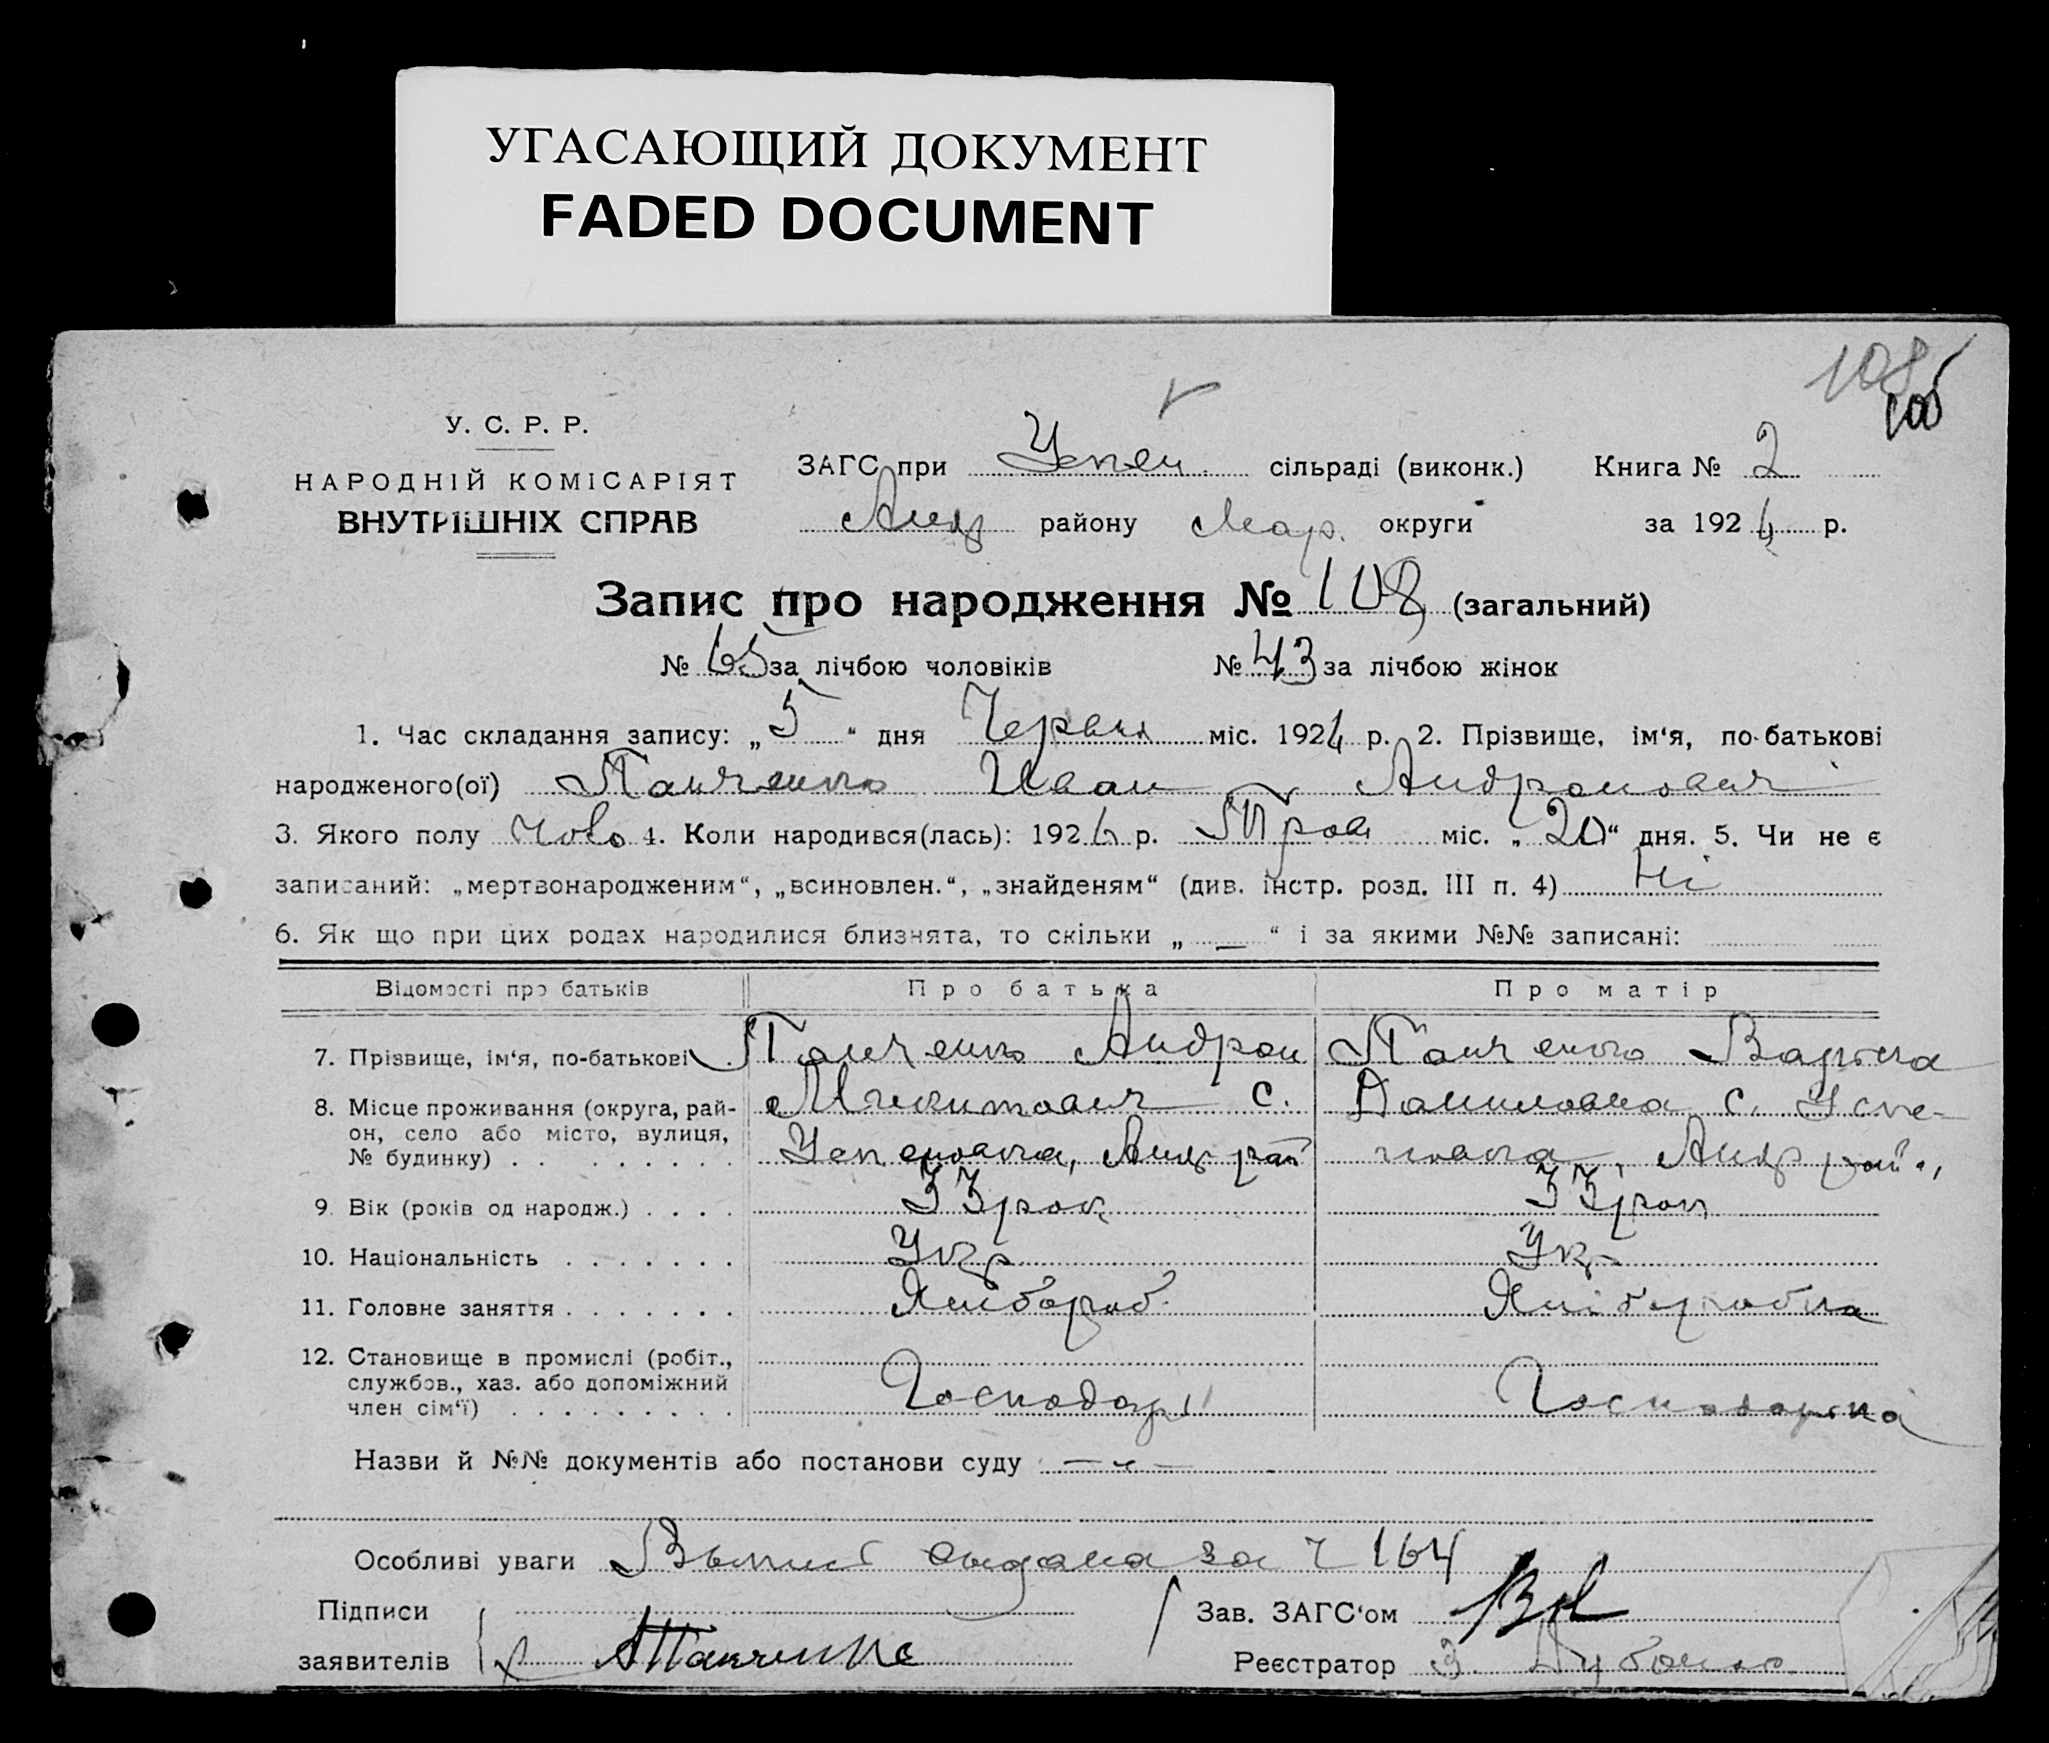 УГАСАЮЩИЙ ДОКУМЕНТ
FADED DOCUMENT
108
У. С. Р. Р.
НАРОДНІЙ КОМІСАРІЯТ
ВНУТРІШНІХ СПРАВ
ЗАГС при Успен. сільраді (виконк.) Книга № 2
Андр району Мар. округи за 1924 р.
Запис про народження № 108 (загальний)
№ 65 за лічбою чоловіків № 43 за лічбою жінок
1. Час складання запису: „5“ дня Червня міс. 1924 р. 2. Прізвище, ім‘я, по-батькові
народженого(ої) Панченко Иван Андронович
3. Якого полу Чоло 4. Коли народився(лась): 192 р. Трав міс. „20“ дня. 5. Чи не є
записаний: „мертвонародженим“, „всиновлен.“, „знайденям“ (див. інстр. розд. III п. 4) Ні
6. Як що при цих родах народилися близнята, то скільки „ — “ і за якими №№ записані:
Відомості про батьків Про батька Про матір
7. Прізвище, ім‘я, по-батькові Панченко Андрон Панченко Варька
8. Місце проживання (округа, рай- Микитович с. Даниловна с. Успе-
он, село або місто, вулиця, № будинку) Успеновка, Андр рай новка, Андр рай.,
9. Вік (років од народж.) 33 рок 33 рок
10. Національність Укр Укр
11. Головне заняття Хлібороб Хліборобка
12. Становище в промислі (робіт.,
службов., хаз. або допоміжний
член сім‘ї) Господарь Господарка
Назви й №№ документів або постанови суду — „ —
Особливі уваги Выпись выдана за ч 164
Підписи Зав. ЗАГС‘ом
заявителів АПанченко Реєстратор